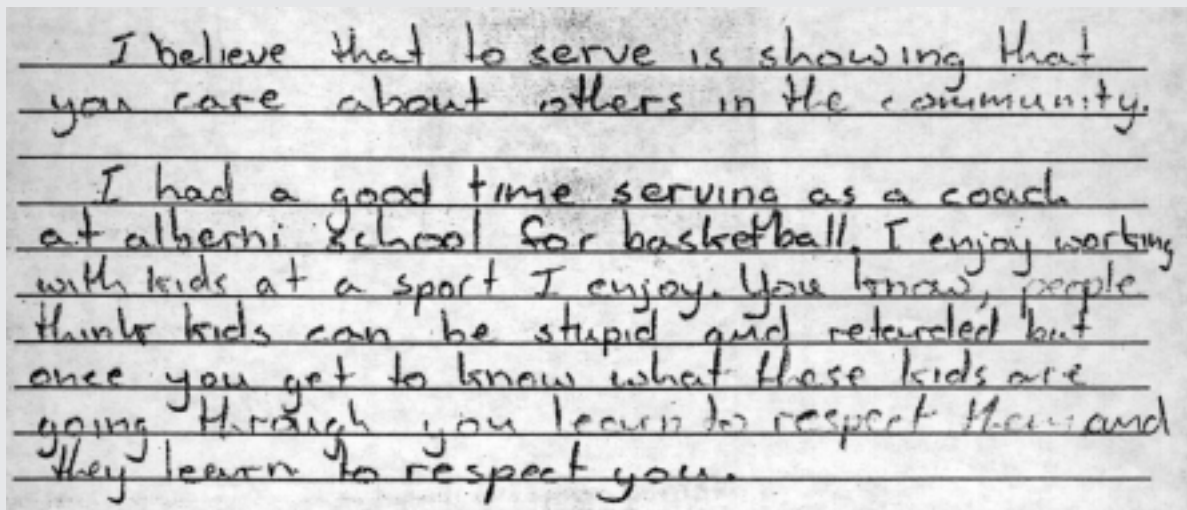 I believe that to serve is showing that
you care about others in the community.
I had a good time serving as a coach
at alberni School for basketball. I enjoy working
with kids at a sport I enjoy. You know, people
think kids can be stupid and retarded but
once you get to know what these kids are
going through you learn to respect them and
they learn to respect you.